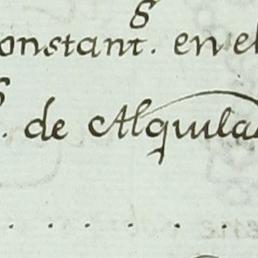 onstant.ᵍ en el
. de Alquila